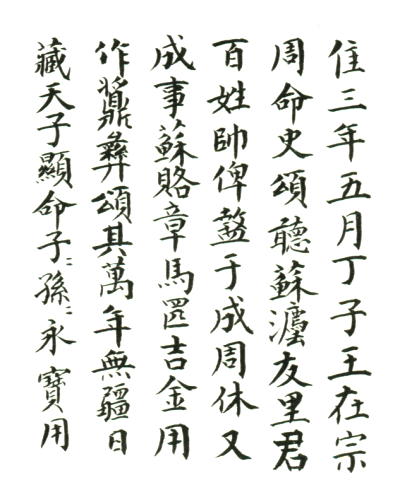 隹三年五月丁子王在宗
周命史頌聽蘇灋友里君
百姓帥俾盩于成周休又
成事蘇賂章馬吉金用
作䵼彝頌其萬年無疆日
藏天子顯命子〻孫〻永寶用